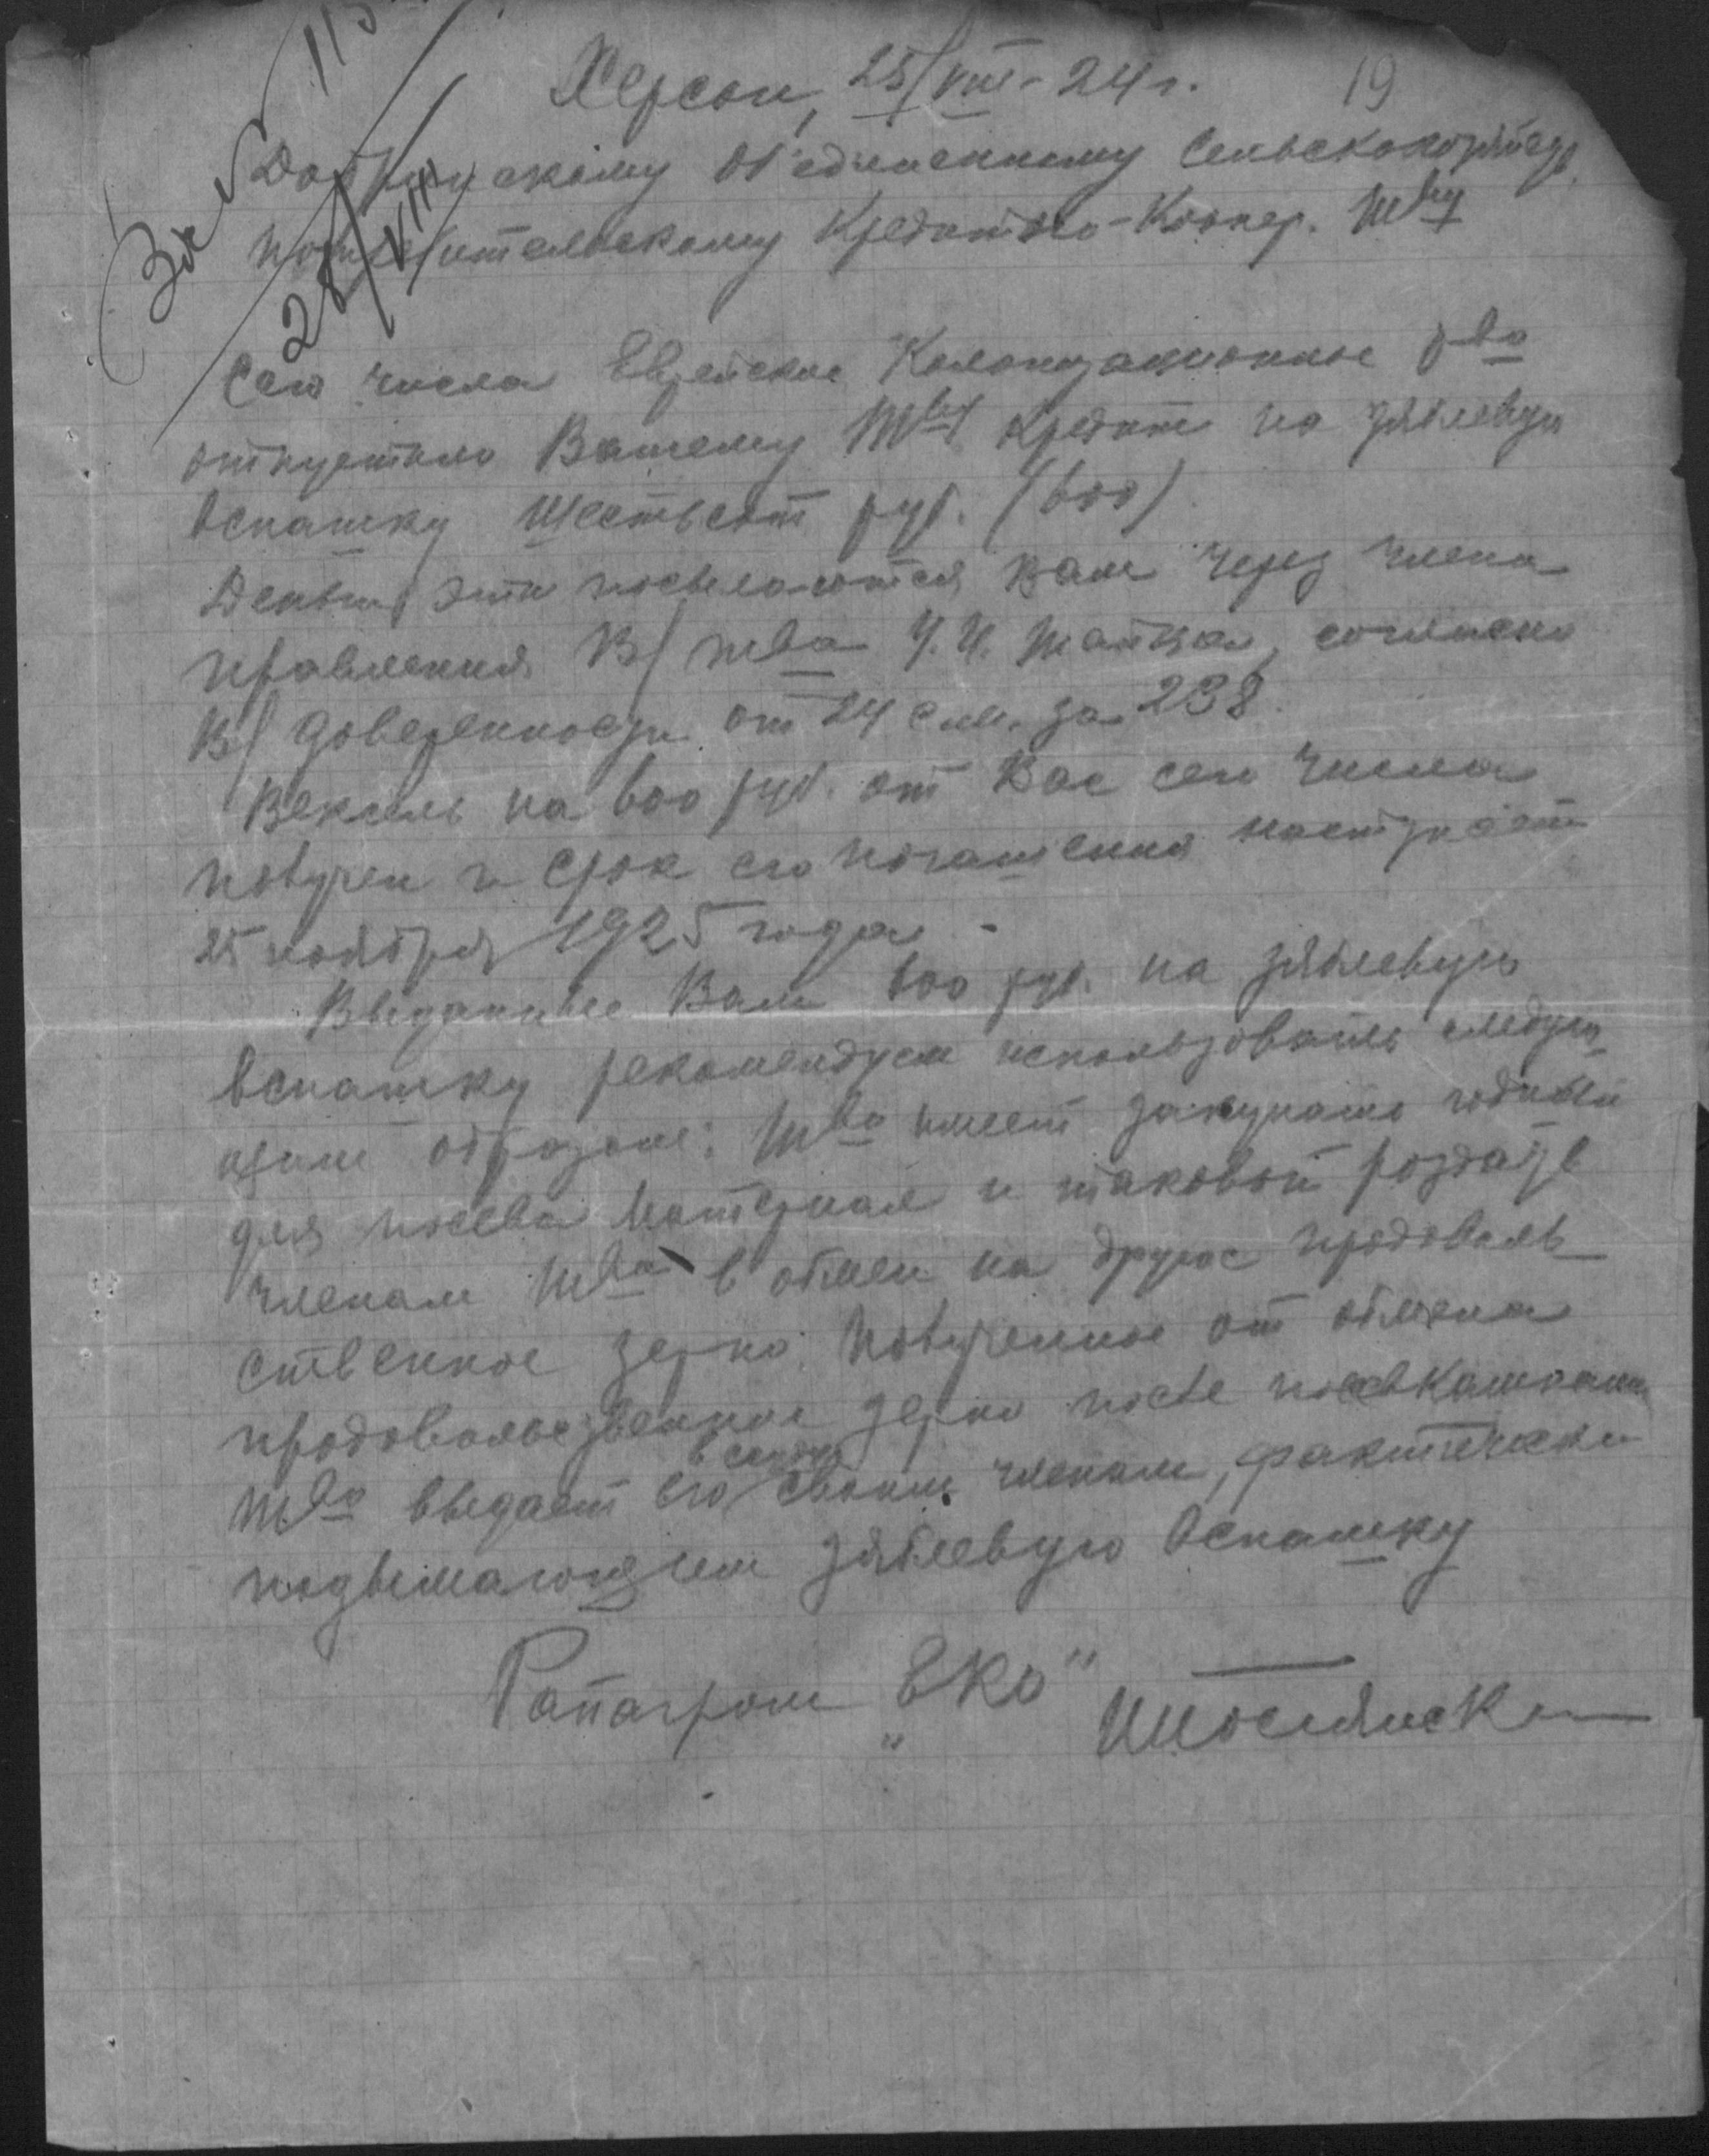 За № 113
28/VIII
19
Херсон, 25/VIII - 24 г.
Об'единенному Сельскохозяйств.
потребительскому Кредитно-Коопер. Т-ву
Сего числа Еврейское Колонизационное О-во
отпустило Вашему Т-ву кредит на зяблевую
вспашку шестьсот руб. (600)
Деньги эти посылаются Вам через члена
правления В/ т-ва согласно
В/ доверенности от 24 с.м. за 238.
Вексель на 600 руб. от Вас сего числа
получен и срок его погашения наступает
25 ноября 1925 года -
Выданные Вам 600 руб. на зяблевую
вспашку рекомендуем использовать следую-
щим образом: Т-во имеет закупать годный
для посева материал и таковой раздать
членам т-ва в обмен на другое продоволь-
ственное зерно. Полученное от обмена
продовольственное зерно после посевкампании
т-во выдает его в ссуду своим членам, фактически
подымающим зяблевую вспашку
Райагроном „ЕКО"